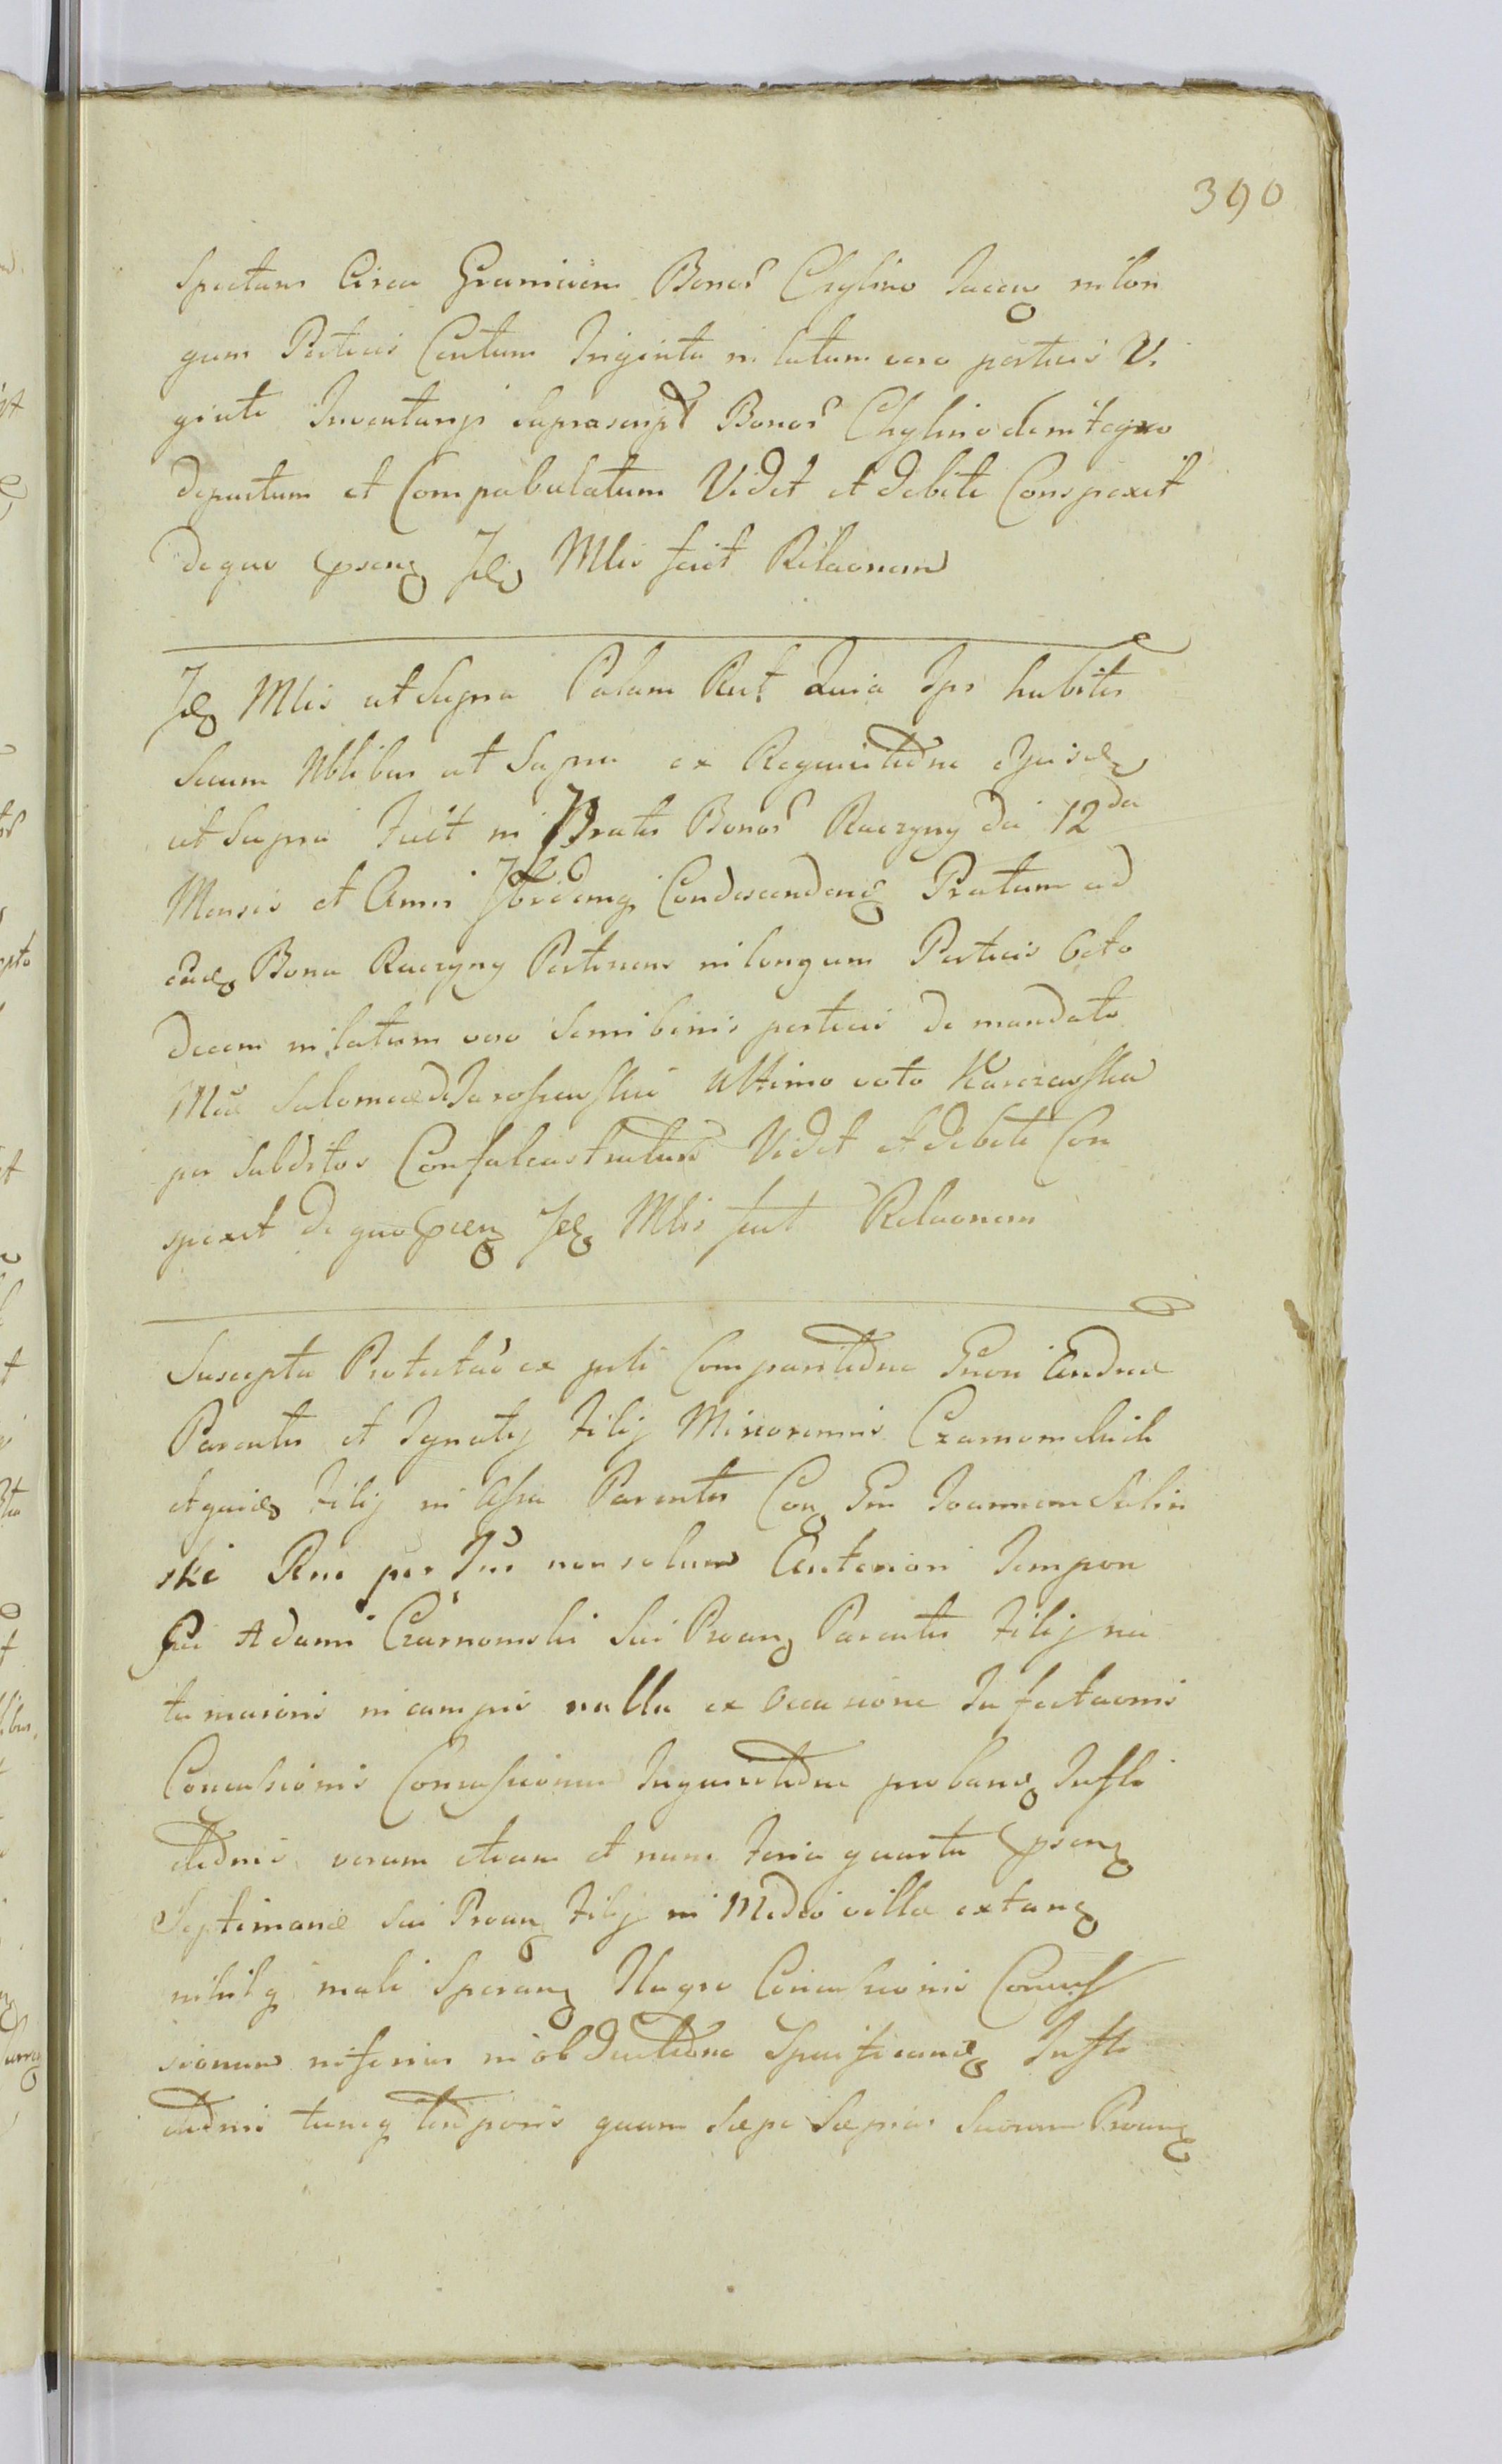 390
Spectans Circa Graniciem Bonor Chylino Jacen in lon
gum Perticis Centum Triginta in latum vero perticis Vi
ginti Inventarys suprascript Bonor Chylino de integro
depactum et Compabulatum Vidit et debite Conspexit
de quo psens Id Mlis fecit Relaonem
Id Mlis ut Supra Palam Rect Quia Ips habitis
Secum Nblibus ut Supra ex Requisitione ejusd
ut Supra fuit in Pratis Bonor Raczyny die 12da
Mensis et Anni Ibidemq Condescendens Pratum ad
ead Bona Raczyny Pertinens in longum Perticis Octo
decem in latum vero Semibinis perticis de mandato
Mcae Salomeae de Jaroszewskie Ultimo voto Karczewska
per Subditos Confalcastratum Vidit et debite Con
spexit De quo psens Id Mlis fecit Relaonem
Suscepta Protestao ex psti Comparitione Gnosi Andreae
Parentis et Ignaty Filij Minorennis Czarnomskich
et quid Filij in Assa Parentis Con Gm Joannem Selin
ski Reo per Ius non solum Anteriori Tempore
Gsi Adami Czarnomski Sui Proan Parentis Filij na
tu maioris in campis nulla ex Occasione Infectaonis
Concussionis Concussionum Inquisitione proband Infli
ctionis verum etiam et nunc feria quarta psens
Septimanae sui Proan Filij in Medio villae extan
nihilq mali Speran Plagae Concussionis Concus
sionum inferius in obductione Specificand Infli
ctionis tuncq temporis quam saepe saepius Suorum Proan